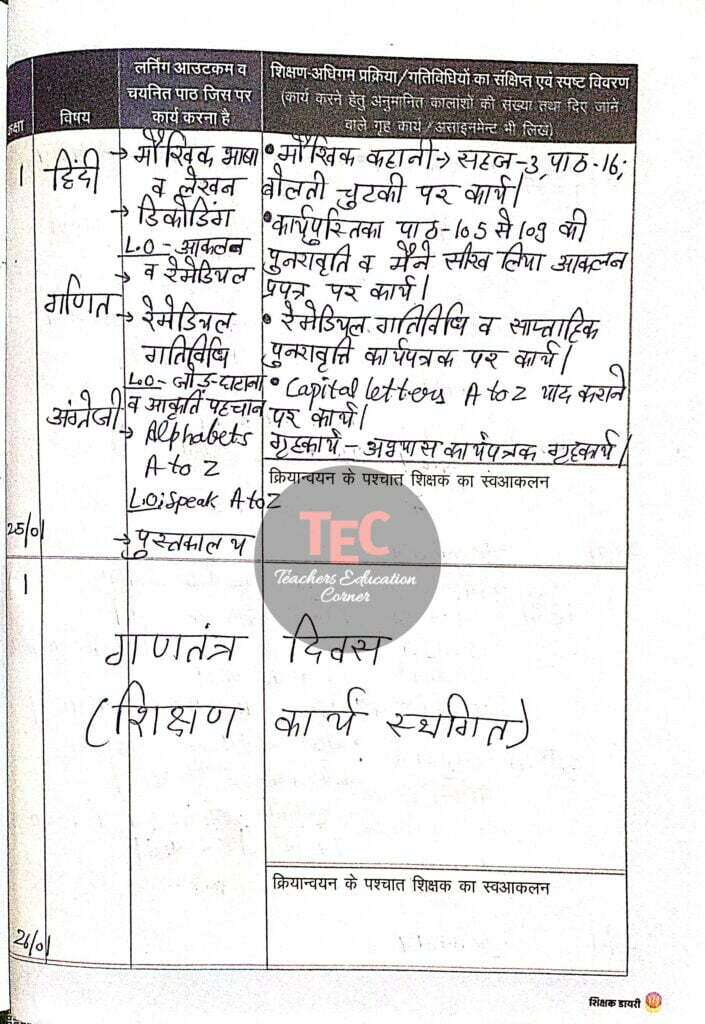 कक्षा
विषय
लर्निंग आउटकम व
चयनित पाठ जिस पर
कार्य करना है
शिक्षण-अधिगम प्रक्रिया/गतिविधियों का संक्षिप्त एवं स्पष्ट विवरण
(कार्य करने हेतु अनुमानित कालांशों की संख्या तथा दिए जाने
वाले गृह कार्य / असाइनमेन्ट भी लिखें)
1
हिंदी
→ मौखिक भाषा
व लेखन
→ डिकोडिंग
L.O - आकलन
व रेमेडियल
गणित
→ रेमेडियल
गतिविधि
L.O - जोड़-घटाना
व आकृति पहचान
अंग्रेजी
→ Alphabets
A to Z
L.O; Speak A to Z
→ पुस्तकालय
25/01
• मौखिक कहानी → सहज-3, पाठ-16;
बोलती चुटकी पर कार्य।
• कार्यपुस्तिका पाठ-105 से 109 की
पुनरावृति व मैंने सीख लिया आकलन
प्रपत्र पर कार्य।
• रेमेडियल गतिविधि व साप्ताहिक
पुनरावृत्ति कार्यपत्रक पर कार्य।
• Capital letters A to Z याद कराने
पर कार्य।
गृहकार्य - अभ्यास कार्यपत्रक गृहकार्य।
क्रियान्वयन के पश्चात शिक्षक का स्वआकलन
TEC
Teachers Education
Corner
1
गणतंत्र दिवस
(शिक्षण कार्य स्थगित)
क्रियान्वयन के पश्चात शिक्षक का स्वआकलन
26/01
शिक्षक डायरी